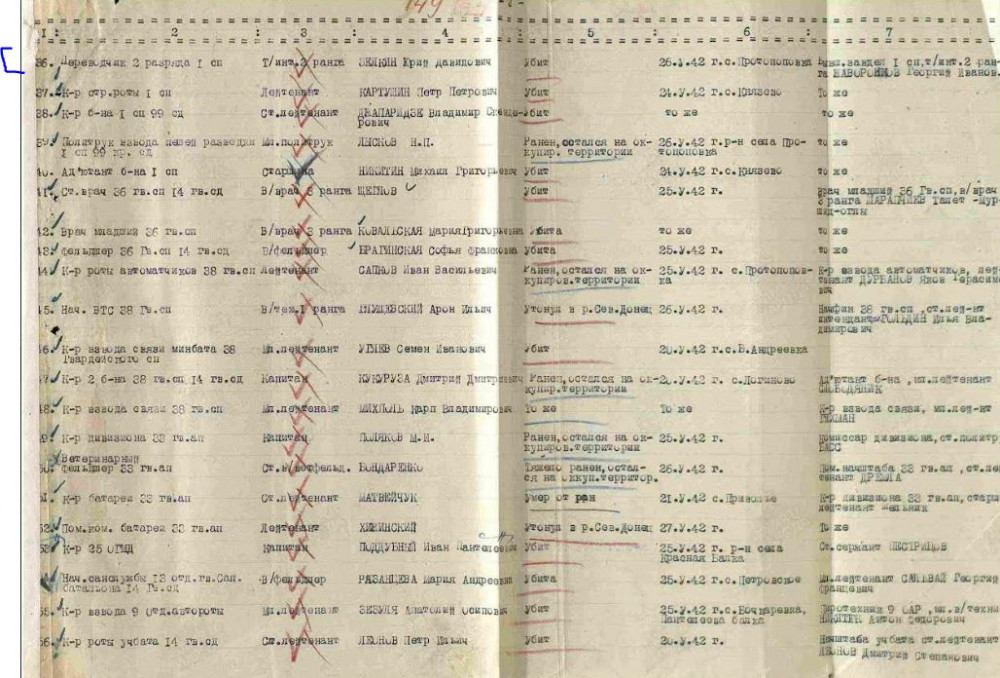 149
1 : 2 : 3 : 4 : 5 : 6 : 7
36. Переводчик 2 разряда I сп Т/инт.2 ранга ЗЕЛКИН Юрий Давидович Убит 26.У.42 г.с.Протоповка I сп,т/инт.2 ран-
га НАВОРОНКОВ Георгий Иванов.
37. К-р стр.роты I сп Лейтенант КАРТУШИН Петр Петрович Убит 24.У.42 г.с.Князево То же
38. К-р б-на I сп 99 сд Ст.лейтенант ДЖАПАРИДЗЕ Владимир Убит то же то же
рович
39. Политрук взвода пешей разведки Мл.политрук ЛЫСКОВ Н.П. Ранен,остался на ок- 26.У.42 г.р-н села Про- то же
I сп 99 сд купир. территории топоповка
40. Ад'ютант б-на I сп Старшина НИКИТИН Михаил Григорьевич Убит 24.У.42 г.с.Князево то же
41. Ст.врач 36 гв.сп 14 гв.сд В/врач 3 ранга ЩЕГЛОВ Убит 25.У.42 г. Врач младший 36 Гв.сп,в/врач
3 ранга Талет -Мур-
42. Врач младший 36 гв.сп В/врач 3 ранга КОВАЛЬСКАЯ Мария Григорьевна Убита то же то же
43. фельдшер 36 Гв.сп 14 гв.сд В/фельдшер БРАГИНСКАЯ Софья Убита 25.У.42 г. то же
44. К-р роты автоматчиков 38 гв.сп Лейтенант САПНОВ Иван Васильевич Ранен,остался на ок- 25.У.42 г. с.Протопопов- К-р взвода автоматчиков, лей-
купиров.территории ка тенант ДУРБАНОВ Яков Герасимо
вич
45. Нач. ВТС 38 Гв.сп В/тех.I ранга ГЛУШЕВСКИЙ Арон Ильич Утонул в р.Сев.Донец 26.У.42 г. Начфин 38 гв.сп ,ст.лей-нт
ГОЛЬДИН Илья Вла-
димирович
46. К-р взвода связи минбата 38 Мл.лейтенант Семен Иванович Убит 20.У.42 г.с.В.Андреевка
Гвардейского сп
47. К-р 2 б-на 38 гв.сп 14 гв.сд Капитан КУКУРУЗА Дмитрий Дмитриевич Ранен,остался на ок- г. с.Логиново Ад'ютант б-на ,мл.лейтенант
купир.территории СЛОБОДЯНИК
48. К-р взвода связи 38 гв.сп Мл.лейтенант Карл Владимирович То же То же К-р взвода связи, мл.лей-нт
49. К-р дивизиона 33 гв.ап Капитан ПОЛЯКОВ М.И. Ранен,остался на ок- 25.У.42 г. Комиссар дивизиона,ст.политр.
купиров.территории БАСС
Ветеринарный
50. фельдшер 33 гв.ап БОНДАРЕНКО Тяжело ранен,остал- 26.У.42 г. Пом.начштаба 33 гв.ап ,ст.лей
ся на оккуп.территор. тенант ДРЕМЛА
51. К-р батареи 33 гв.ап Ст.лейтенант МАТВЕЙЧУК Умер от ран 21.У.42 с.Приволье К-р дивизиона 33 гв.ап,старш
лейтенант Мельник
52. Пом.ком. батареи 33 гв.ап Лейтенант ХИЖИНСКИЙ Утонул в р.Сев.Донец 27.У.42 г. То же
53. К-р 25 ОПТД Капитан ПОДДУБНЫЙ Иван Пантелеевич Убит 25.У.42 г. р-н села Ст.сержант ПЕСТРИЦОВ
Красная Балка
Нач.санслужбы 13 отд.гв.Сан. В/фельдшер РЯЗАНЦЕВА Мария Андреевна Убита 25.У.42 г.с.Петровское Мл.лейтенант Георгий
батальона 14 Гв.сд Францевич
55. К-р взвода 9 отд.автороты Мл.лейтенант ЗЕЗУЛЯ Анатолий Осипович Убит 25.У.42 г.с.Бочкаревка, Пиротехник 9 ОАР ,мл.в/техни
Пантелеева балка НИКИТЮК Антон Федорович
56. К-р роты учбата 14 гв.сд Ст.лейтенант ЛЕОНОВ Петр Ильич Убит 26.У.42 г. Начштаба учбата ст.лейтенант
ЛЕОНОВ Дмитрий Степанович